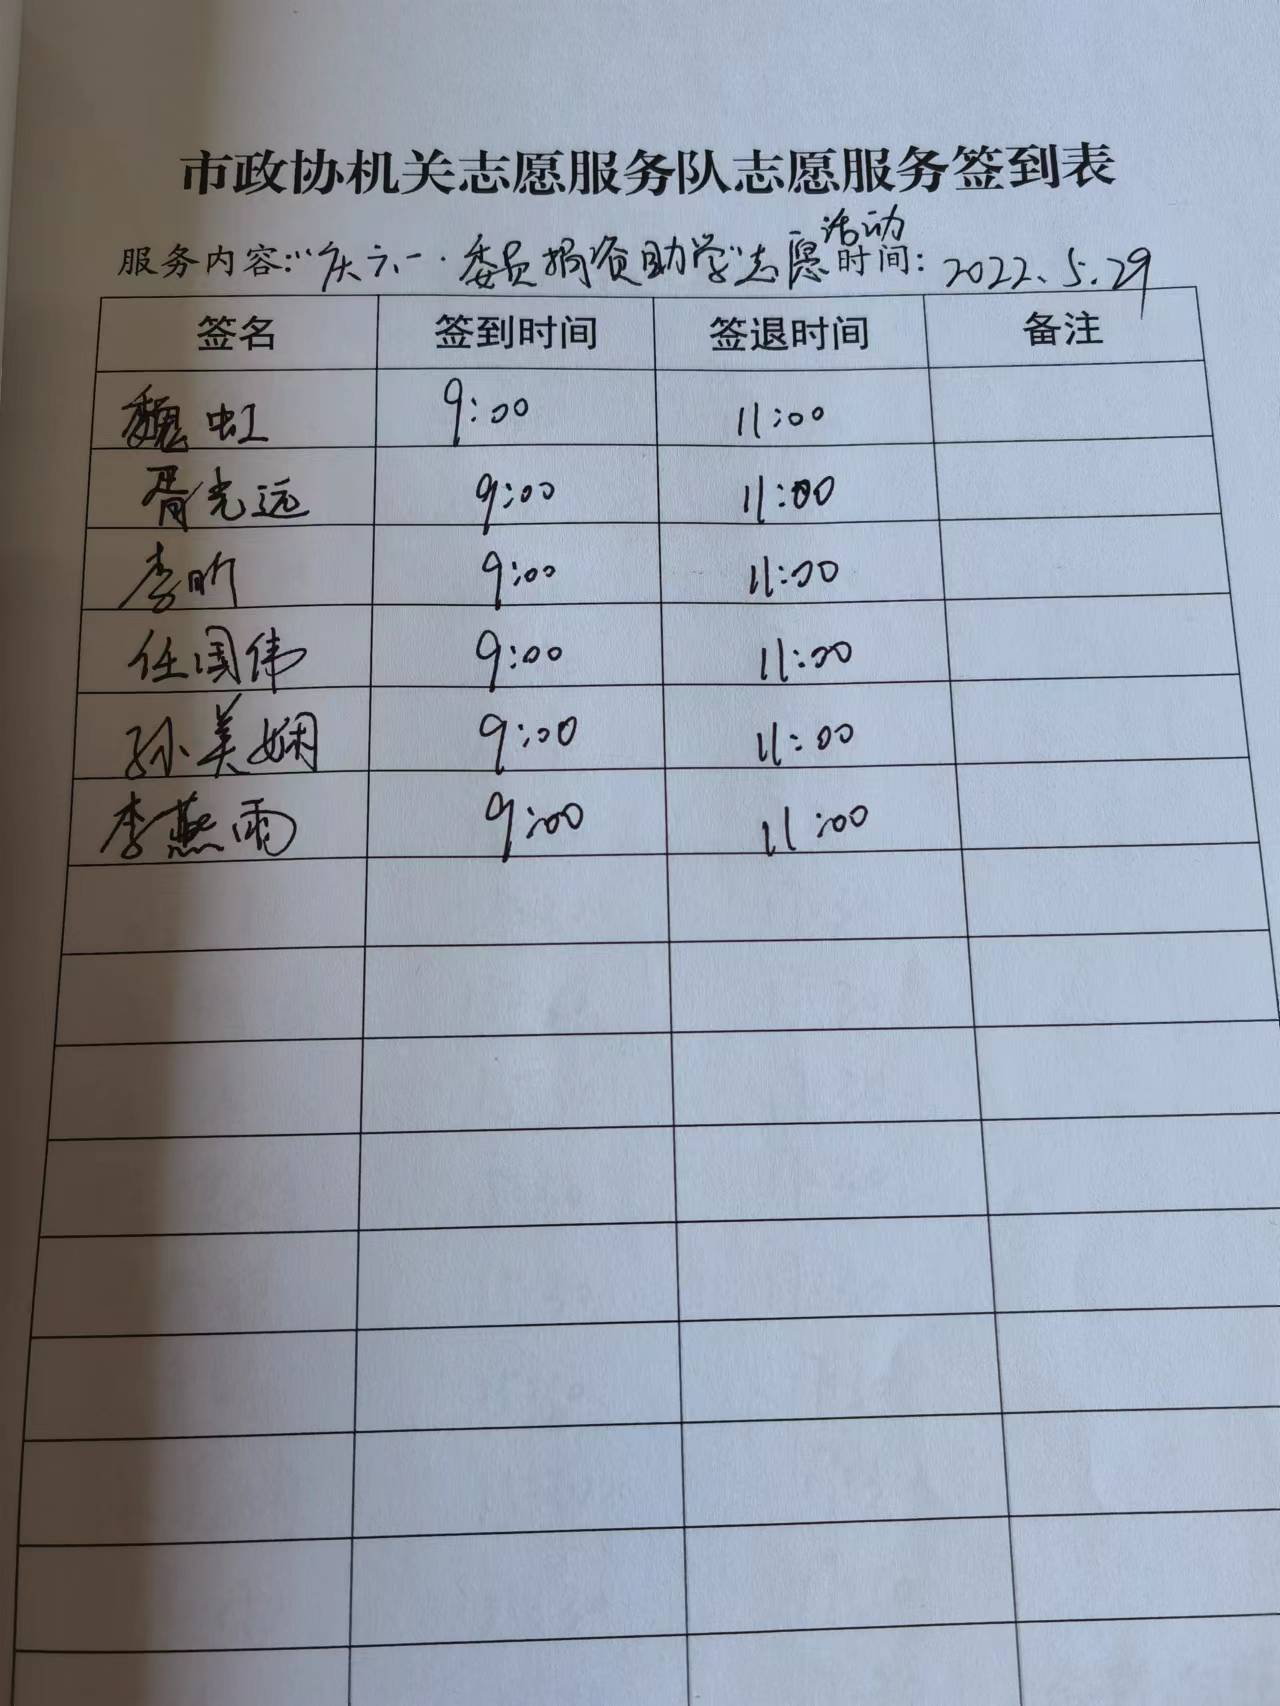 市政协机关志愿服务队志愿服务签到表
服务内容:“庆六一·委员捐资助学”志愿活动 时间: 2022.5.29
签名 签到时间 签退时间 备注
魏虹 9:00 11:00
胥光远 9:00 11:00
李昕 9:00 11:00
任国伟 9:00 11:00
孙美娴 9:00 11:00
李燕雨 9:00 11:00